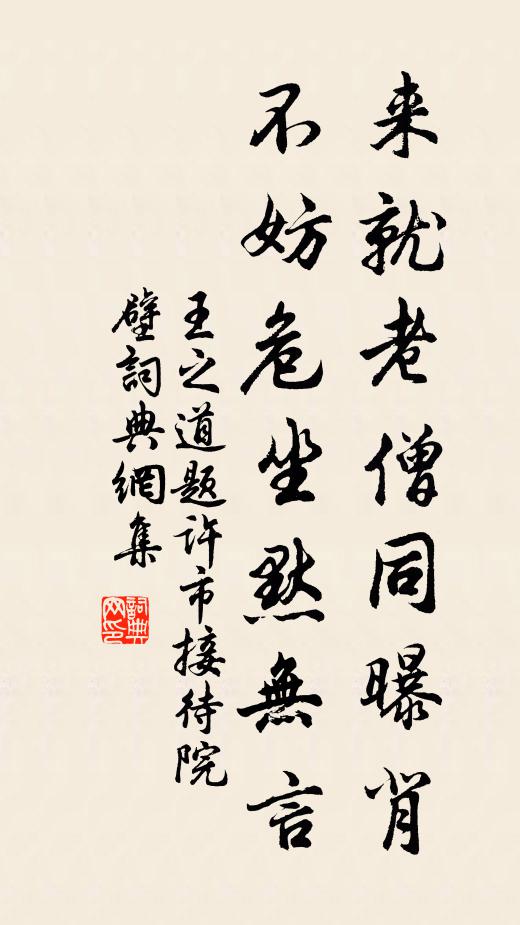 来就老僧同曝背
不妨危坐默無言
王之道题許市接待院
壁詞典網集
詞典
网印